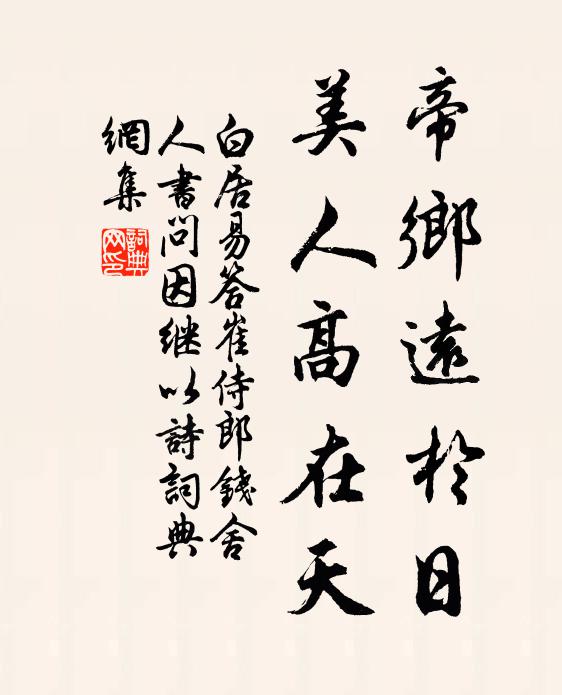 帝鄉遠於日
美人高在天
白居易答崔侍郎錢舍
人書問因继以詩詞典
網集
詞典
网印